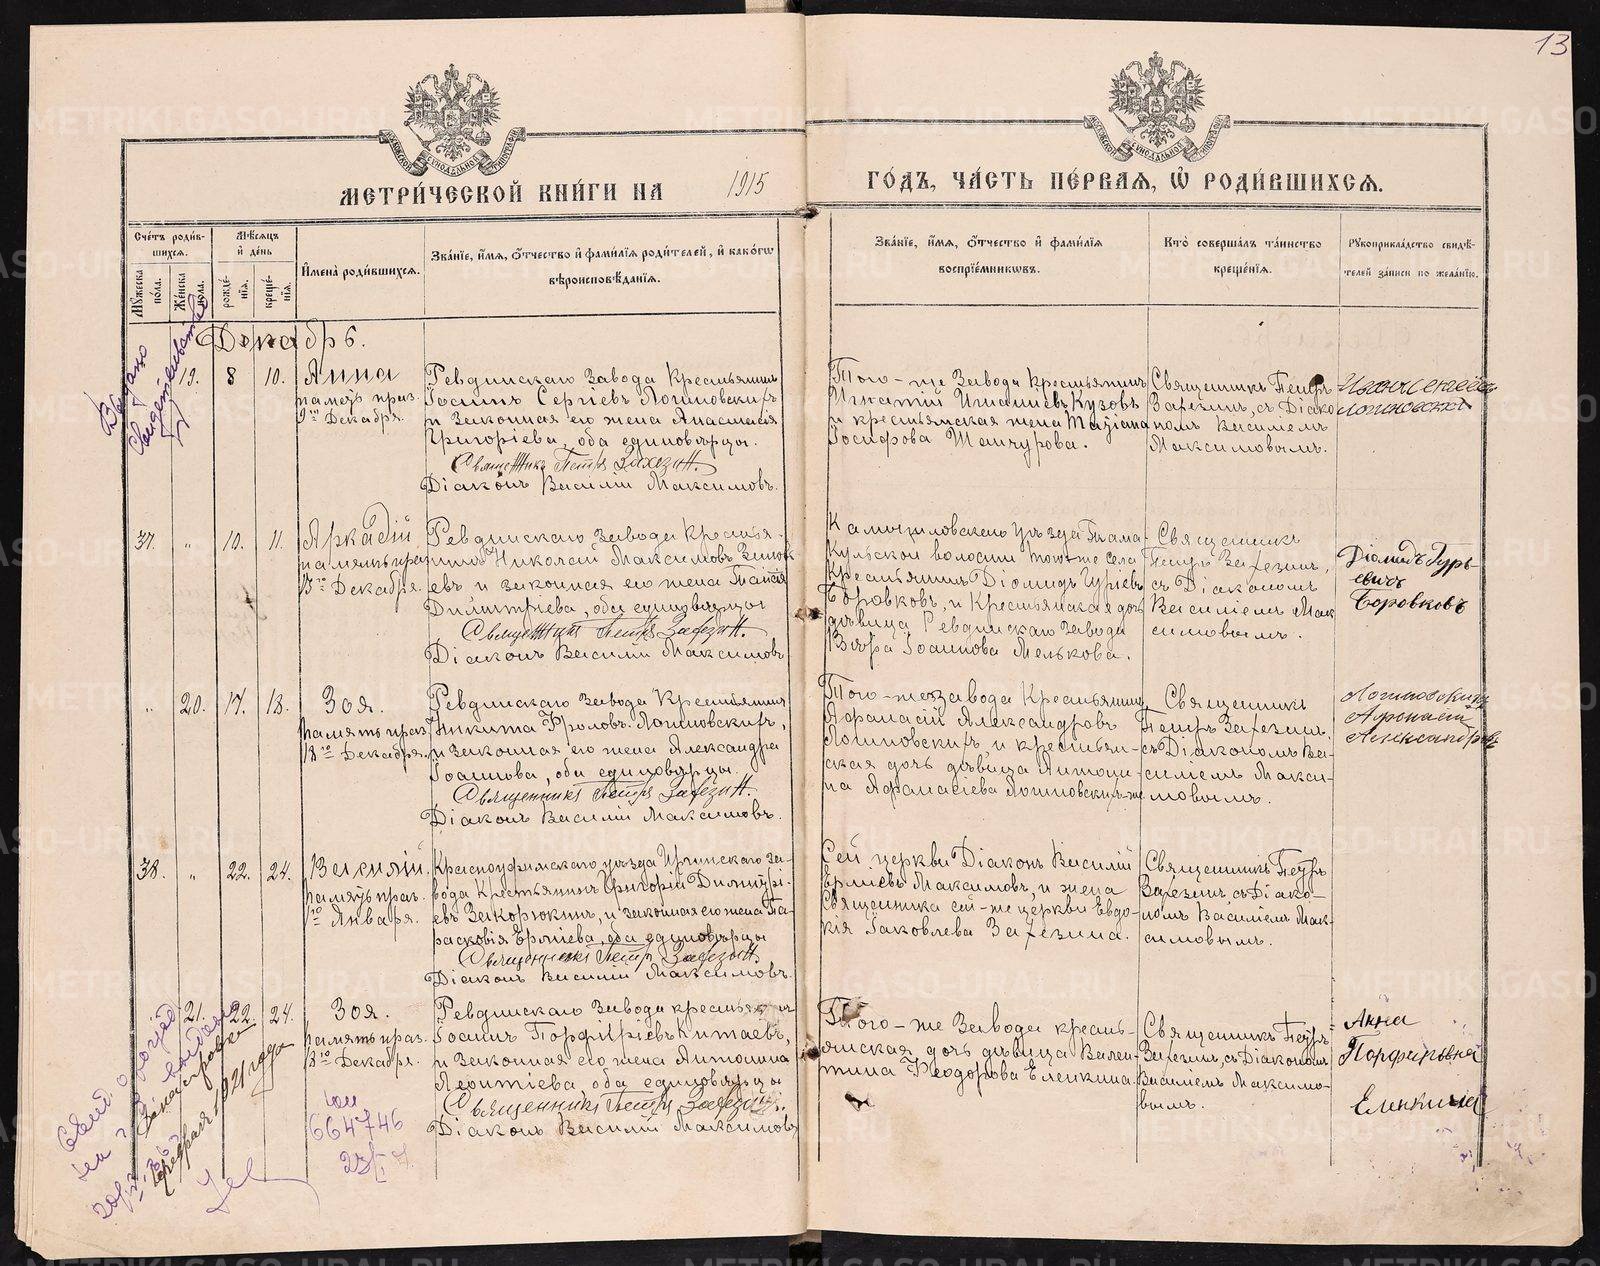 13
МЕТРИ́ЧЕСКОЙ КНИ́ГИ НА 1915 ГО́ДЪ, ЧА́СТЬ ПЕ́РВАЯ, Ѡ РОДИ́ВШИХСЯ.
Сче́тъ роди́вшихся.
Му́жеска по́ла.
Же́нска по́ла.
Мѣ́сяцъ и де́нь
рожде́нїя.
креще́нїя.
И҆мена̀ роди́вшихся.
Зва́нїе, и҆́мя, ѻ҆́тчество и҆ фами́лїя роди́телей, и҆ како́гѡ
вѣроисповѣ́данїя.
Зва́нїе, и҆́мя, ѻ҆́тчество и҆ фами́лїя
воспрїе́мникѡвъ.
Кто̀ соверша́лъ та́инство
креще́нїя.
Рꙋкоприкла́дство свидѣ́-
телей за́писи по жела́нїю.
Декабрь.
Выдано
Свидетельство
19. 8 10.
Анна
память праз.
9го Декабря.
Ревдинскаго Завода Крестьянин
Іоаннъ Сергіевъ Логиновскихъ
и Законная его жена Анастасія
Григоріева, оба единоверцы.
Священникъ Петръ Захезин.
Діаконъ Василій Максимовъ.
Того-же Завода крестьянинъ
Игнатій Игнатіевъ Кузовъ
и крестьянская жена Татіана
Іосифова Шемчурова.
Священникъ Петръ
Захезинъ, съ Діако
номъ Василіемъ
Максимовымъ.
37. " 10. 11.
Аркадій
память праз
13го Декабря.
Ревдинскаго Завода Крестья-
нинъ Николай Максимовъ
евъ и законная его жена Таисія
Димитріева, оба единоверцы
Священникъ Петръ Захезин.
Діаконъ Василій Максимовъ
Камышловскаго уѣзда Тама
кульской волости того-же села
Крестьянинъ Діомидъ Гуріевъ
Боровковъ, и Крестьянская дочь
дѣвица Ревдинскаго Завода
Вѣра Іоаннова Мелькова.
Священникъ
Петръ Захезинъ,
съ Діакономъ
Василіемъ Мак
симовымъ.
Діомидъ Гурь
евичъ
Боровковъ
" 20. 17. 18.
Зоя.
память праз.
18го Декабря.
Ревдинскаго Завода Крестьянин
Никита Фроловъ Логиновскихъ,
и законная его жена Александра
Іоаннова, оба единоверцы.
Священникъ Петръ Захезин.
Діаконъ Василій Максимовъ.
Того-же завода Крестьянинъ
Афанасій Александровъ
Логиновскихъ, и крестьян-
ская дочь дѣвица Антони-
на Афанасіева Логиновскихъ-же
Священникъ
Петръ Захезинъ
съ Діакономъ Ва-
силіемъ Макси-
мовымъ.
Логиновскихъ
Афонасий
Александров
38. " 22. 24.
Василій.
память праз.
1го Января.
Красноуфимскаго уѣзда Иргинскаго за-
вода Крестьянинъ Григорій Димитрі-
евъ Закорюкинъ, и законная его жена Па-
расковія Ерміева, оба единоверцы
Священникъ Петръ Захезин
Діаконъ Василій Максимовъ.
Сей церкви Діаконъ Василій
Ерміевъ Максимовъ, и жена
Священника сей-же церкви Евдо-
кія Іаковлева Захезина.
Священникъ Петръ
Захезинъ, съ Діако-
номъ Василіемъ Мак-
симовымъ.
21. 22. 24.
Зоя.
память праз.
18го Декабря.
Ревдинскаго Завода крестьянин
Іоаннъ Порфиріевъ Китаевъ,
и Законная его жена Антонина
Леонтіева, оба единоверцы
Священникъ Петръ Захезин.
Діаконъ Василій Максимовъ
Того-же Завода кресть-
янская дочь дѣвица Вален-
тина Ѳеодорова Еленкина.
Священникъ Петръ
Захезинъ, съ Діакономъ
Василіемъ Максимо-
вымъ.
Анна
Парфировна
Еленкина
февраля 1921 года
664746